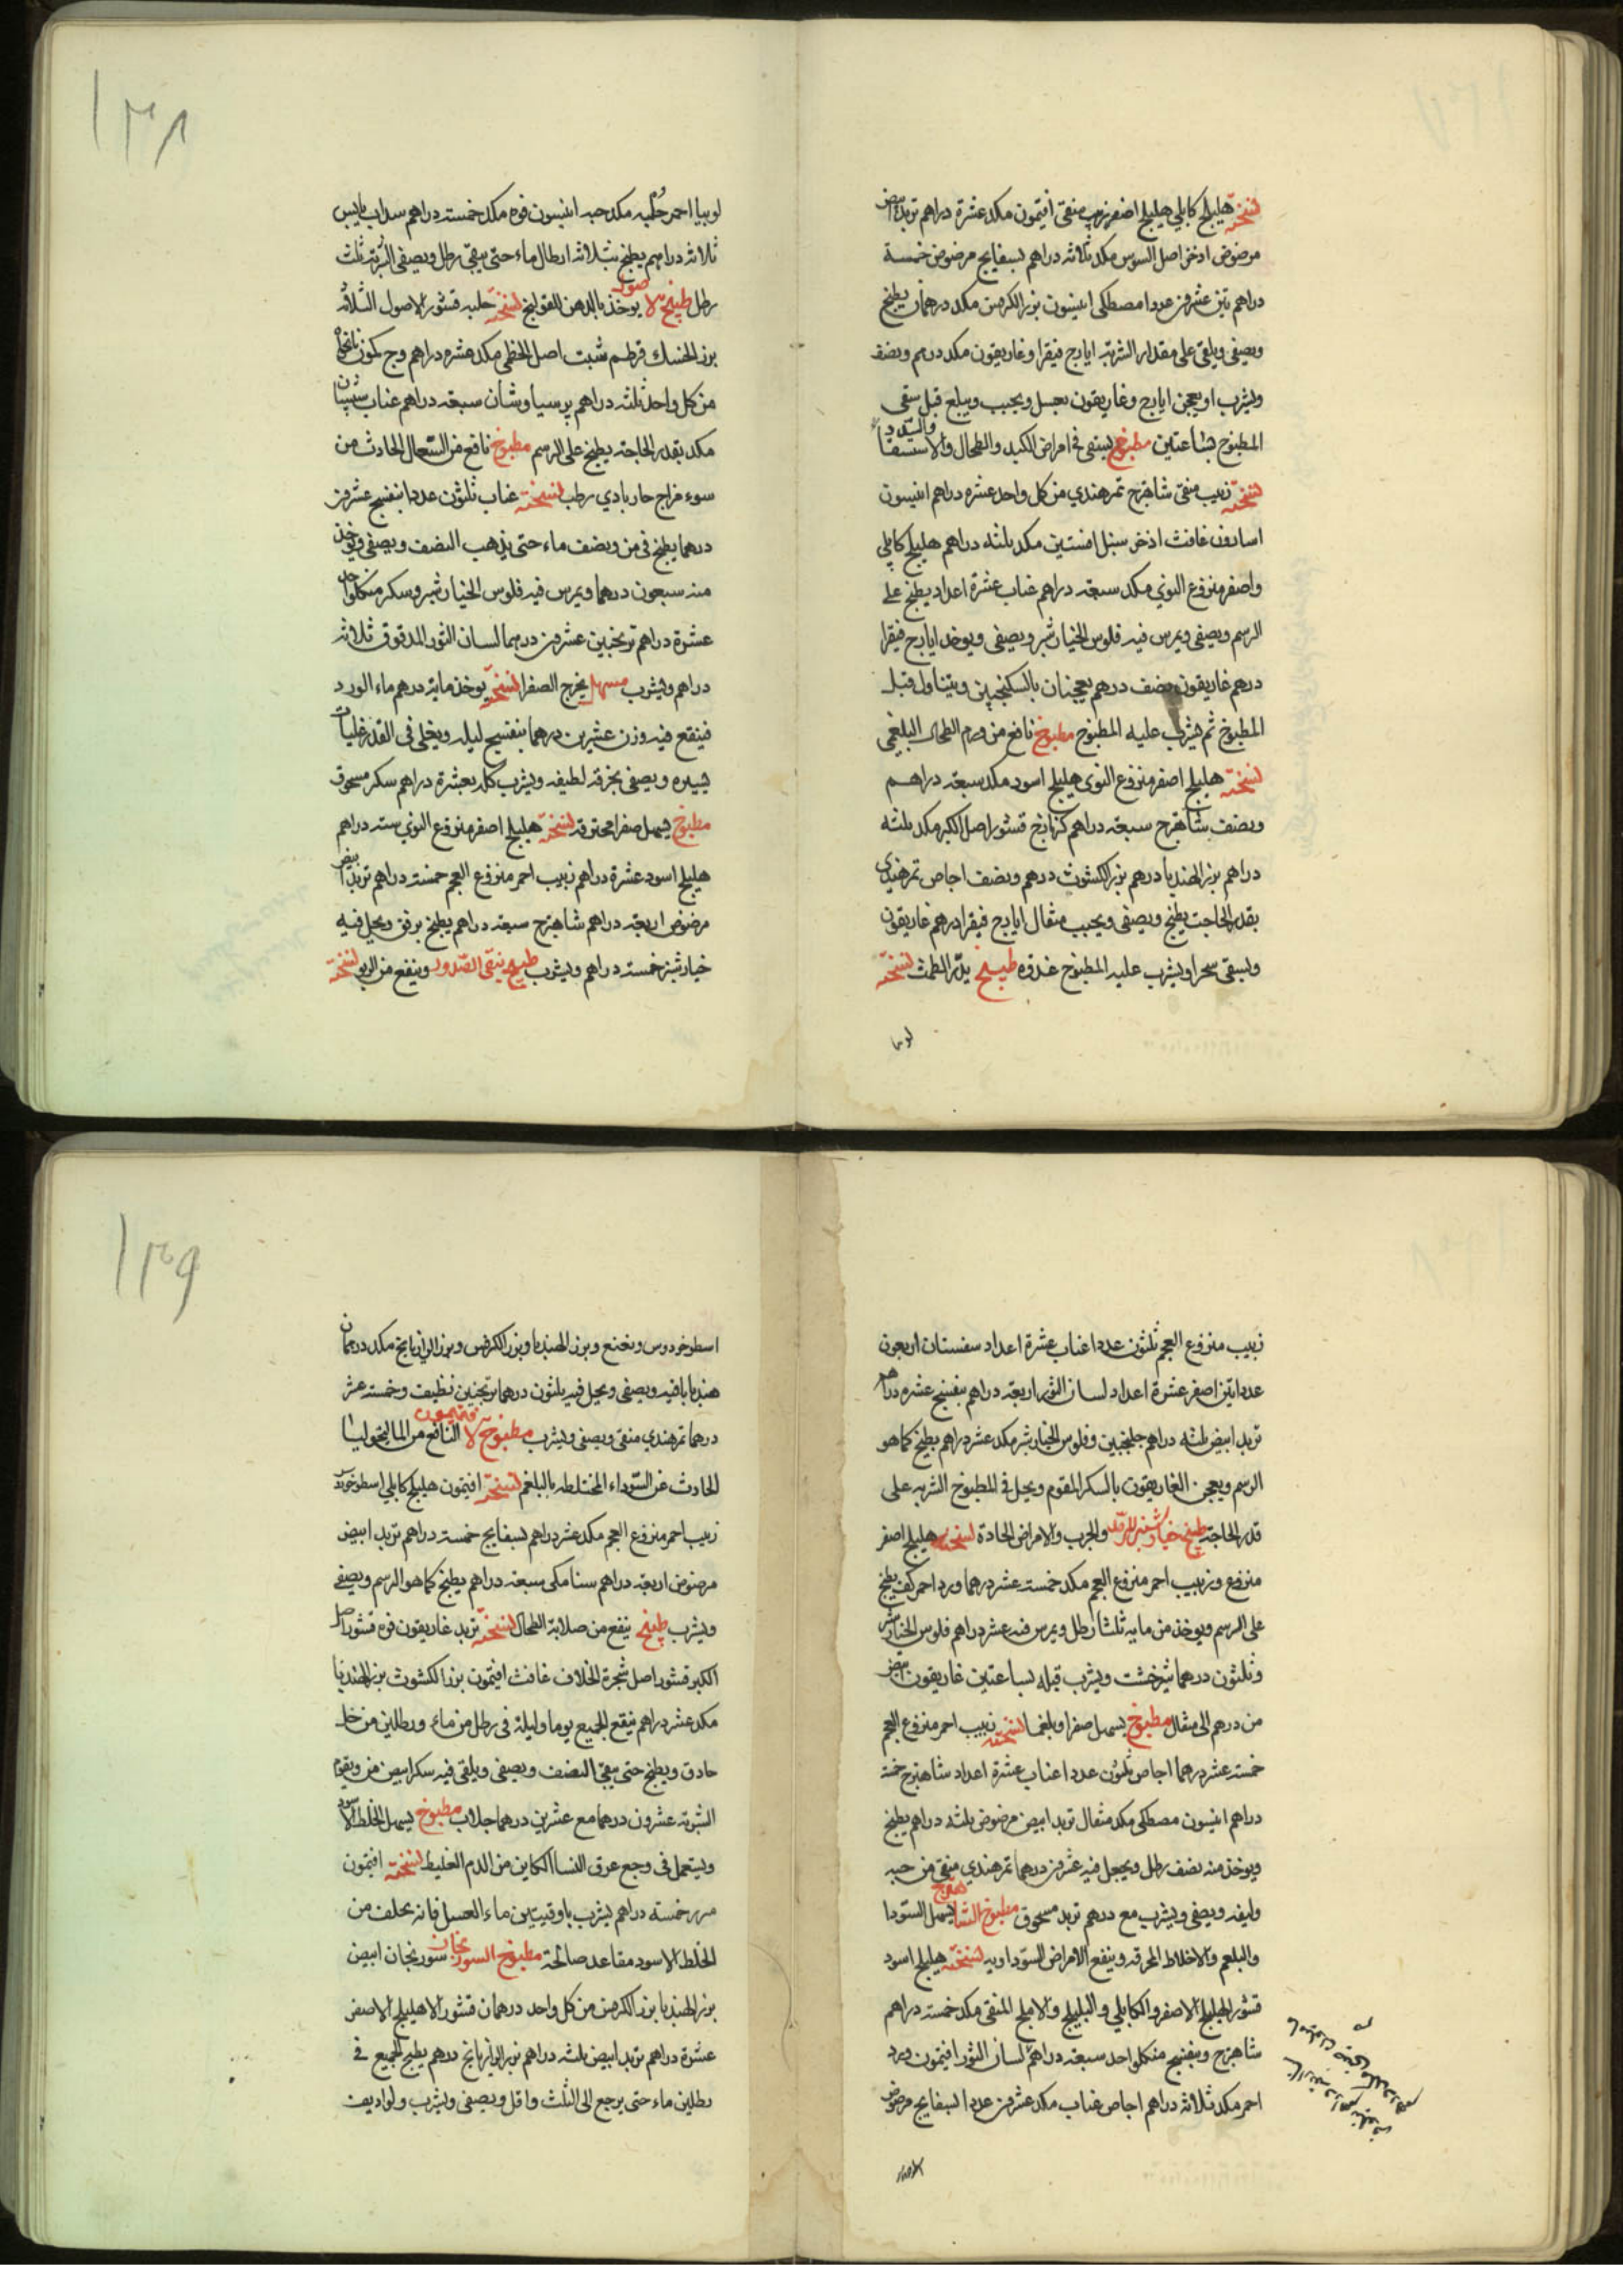 ١٣٨
نسخته هليلج كابلي هليلج اصفر زبيب منقى افتيمون مكد عشرة دراهم تربد ابيض
مرضوض اذخر اصل السوس مكد ثلاثه دراهم بسفايج مرضوض خمسة
دراهم تين عشرين عددا مصطكى انيسون بزر الكرفس مكد درهمان يطبخ
ويصفى ويلقى على مقدار الشربة ايارج فيقرا وغاريقون مكد درهم ونصف
ويشرب او يعجن ايارج وغاريقون بعسل ويحبب ويبلع قبل سقي
المطبوخ بساعتين مطبوخ يسقى في امراض الكبد والطحال والاستسقا والسدد
نسخته زبيب منقى شاهترج تمرهندي من كل واحد عشرة دراهم انيسون
اسارون غافث اذخر سنبل افسنتين مكد ثلثه دراهم هليلج كابلي
واصفر منزوع النوي مكد سبعة دراهم عناب عشرة اعداد يطبخ على
الرسم ويصفى ويمرس فيه فلوس الخيارشنبر ويصفى ويوخذ ايارج فيقرا
درهم غاريقون نصف درهم يعجنان بالسكنجبين ويتناول قبل
المطبوخ ثم يشرب عليه المطبوخ مطبوخ نافع من ورم الطحال البلغمي
نسخته هليلج اصفر منزوع النوى هليلج اسود مكد سبعة دراهم
ونصف شاهترج سبعة دراهم كزمازج قشور اصل الكبر مكد ثلثه
دراهم بزر الهندبا درهم بزر الكشوث درهم ونصف اجاص تمرهندي
بقدر الحاجت يطبخ ويصفى ويحبب مثقال ايارج فيقرا درهم غاريقون
ويسقى سحرا ويشرب عليه المطبوخ غدوه طبيخ يدر الطمث نسخته
لوبيا
لوبيا احمر حلبه مكد حبه انيسون فوه مكد خمسة دراهم سداب يابس
ثلاثه دراهم يطبخ بثلاثه ارطال ماء حتى يبقى رطل ويصفى الشربة ثلث
رطل طبيخ الاصول يوخذ بالدهن للقولنج نسخته حلبه قشور الاصول الثلاثه
بزر الحسك قرطم شبت اصل الخطمي مكد عشره دراهم وج كمون نانخواه
من كل واحد ثلثه دراهم برسياوشان سبعة دراهم عناب سبستان
مكد بقدر الحاجة يطبخ على الرسم مطبوخ نافع من السعال الحادث من
سوء مزاج حار بادي رطب نسخته عناب ثلثون عددا بنفسج عشرين
درهما يطبخ في من ونصف ماء حتى يذهب النصف ويصفى ويوخذ
منه سبعون درهما ويمرس فيه فلوس الخيارشنبر وسكر من كلواحد
عشرة دراهم ترنجبين عشرين درهما لسان الثور المدقوق ثلاثه
دراهم ويشرب مسهل يخرج الصفرا نسخته يوخذ مايه درهم ماء الورد
فينقع فيه وزن عشرين درهما بنفسج ليله ويغلى في القدر غليات
يسيره ويصفى بخرقه لطيفه ويشرب كله بعشرة دراهم سكر مسحوق
مطبوخ يسهل صفرا محترقه نسخته هليلج اصفر منزوع النوي سته دراهم
هليلج اسود عشرة دراهم زبيب احمر منزوع العجم خمسة دراهم تربد ابيض
مرضوض اربعة دراهم شاهترج سبعة دراهم يطبخ برفق ويحل فيه
خيارشنبر خمسة دراهم ويشرب طبيخ ينقى الصدر وينفع من الربو نسخته
١٣٩
زبيب منزوع العجم ثلثون عددا عناب عشرة اعداد سفستان اربعون
عددا تين اصفر عشرة اعداد لسان الثور اربعة دراهم بنفسج عشره دراهم
تربد ابيض ثلثه دراهم جلنجبين وفلوس الخيارشنبر مكد عشر دراهم يطبخ كما هو
الرسم ويعجن الغاريقون بالسكر المقوم ويحل في المطبوخ الشربه على
قدر الحاجة طبيخ خيارشنبر للرمد والجرب والامراض الحادة نسخته هليلج اصفر
منزوع وزبيب احمر منزوع العجم مكد خمسة عشر درهما ورد احمر كف يطبخ
على الرسم ويوخذ من مايه ثلثا رطل ويمرس فيه عشر دراهم فلوس الخيارشنبر
وثلثون درهما شيرخشت ويشرب قبله بساعتين غاريقون ابيض
من درهم الى مثقال مطبوخ يسهل صفرا وبلغما نسخته زبيب احمر منزوع العجم
خمسة عشر درهما اجاص ثلثون عددا عناب عشرة اعداد شاهترج خمسة
دراهم انيسون مصطكى مكد مثقال تربد ابيض مرضوض ثلثه دراهم يطبخ
ويوخذ منه نصف رطل ويجعل فيه عشرين درهما تمرهندي منقى من حبه
وليفه ويصفى ويشرب مع درهم تربد مسحوق مطبوخ الشاهترج يسهل السودا
والبلغم والاخلاط المحرقه وينفع الامراض السوداويه نسخته هليلج اسود
قشور الهليلج الاصفر والكابلي والبليلج والاملج المنقى مكد خمسة دراهم
شاهترج وبنفسج من كلواحد سبعة دراهم لسان الثور افتيمون ورد
احمر مكد ثلاثه دراهم اجاص عناب مكد عشرين عددا بسفايج مرضوض
اسطوخودوس ونعنع وبزر الهندبا وبزر الكرفس وبزر الرازيانج مكد درهمان
هندبا باقيه ويصفى ويحل فيه ثلثون درهما ترنجبين نظيف وخمسة عشر
درهما تمرهندي منقى ويصفى ويشرب مطبوخ الافتيمون النافع من الماليخوليا
الحادث عن السوداء المختلطه بالبلغم نسخته افتيمون هليلج كابلي اسطوخودس
زبيب احمر منزوع العجم مكد عشر دراهم بسفايج خمسة دراهم تربد ابيض
مرضوض اربعة دراهم سنا مكى سبعة دراهم يطبخ كما هو الرسم ويصفى
ويشرب طبيخ ينفع من صلابة الطحال نسخته تربد غاريقون فوه قشور اصل
الكبر قشور اصل شجرة الخلاف غافث افتيمون بزر الكشوث بزر الهندبا
مكد عشر دراهم ينقع الجميع يوما وليلة في رطل من ماء ورطلين من خل
حاذق ويطبخ حتى يبقى النصف ويصفى ويلقى فيه سكر ابيض من ويقوم
الشربة عشرون درهما مع عشرين درهما جلاب مطبوخ يسهل الخلط الاسود
ويستعمل في وجع عرق النسا الكاين من الدم الغليظ نسخته افتيمون
خمسة دراهم يشرب باوقيتين ماء العسل فانه يحلف من
الخلط الاسود مقاعد صالحة مطبوخ السورنجان سورنجان ابيض
بزر الهندبا بزر الكرفس من كل واحد درهمان قشور الاهليلج الاصفر
عشرة دراهم تربد ابيض ثلثه دراهم بزر الرازيانج درهم يطبخ الجميع في
رطلين ماء حتى يرجع الى الثلث واقل ويصفى ويشرب ولو اديف